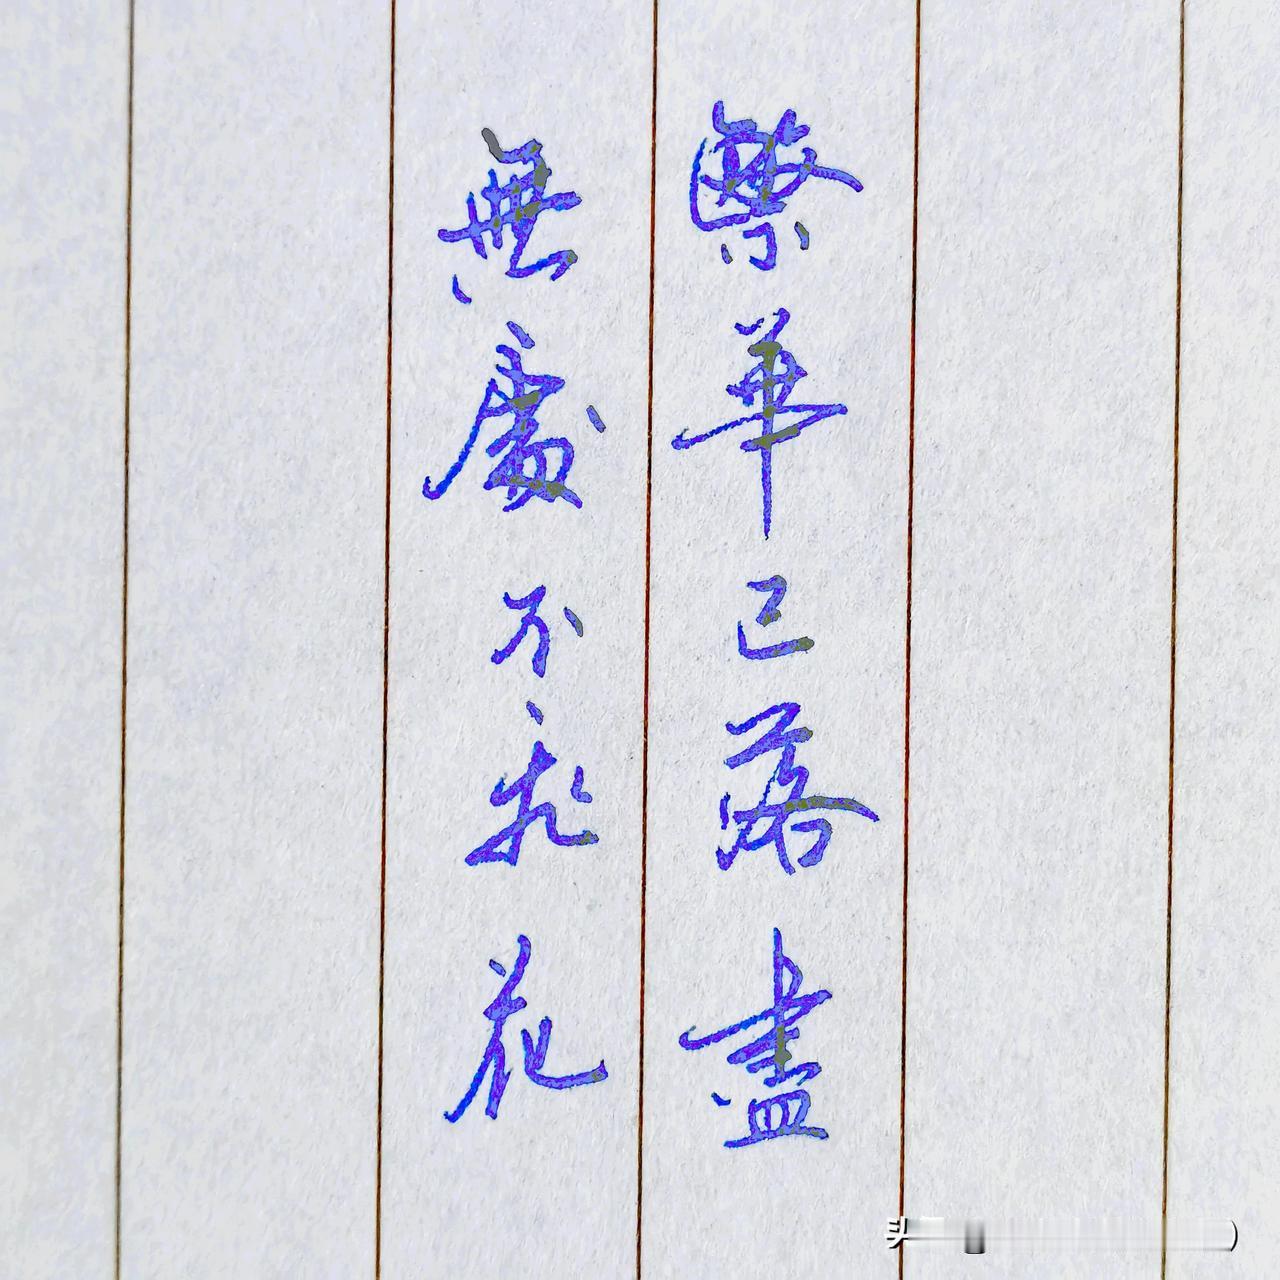 繁華已落盡
無處不飛花
头